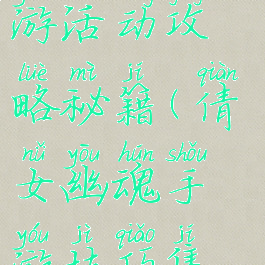 游活动攻
lüè mì jí qiàn
略秘籍(倩
nǚ yōu hún shǒu
女幽魂手
yóu jì qiǎo jí
游技巧集